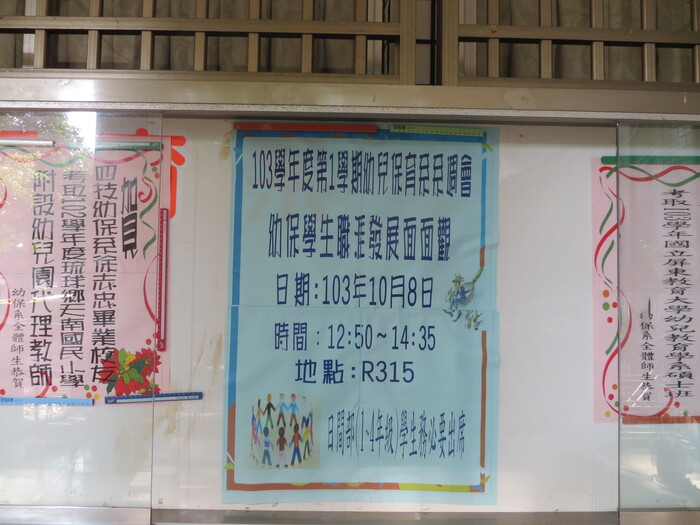 賀
四技幼保系徐志忠畢業校友
考取102學年度琉球鄉天南國民小學
附設幼兒園代理教師
幼保系全體師生恭賀
103學年度第1學期幼兒保育系系週會
幼保學生職涯發展面面觀
日期:103年10月8日
時間:12:50~14:35
地點:R315
日間部(1~4年級)學生務必要出席
考取102學年國立屏東教育大學幼兒教育學系碩士班
幼保系全體師生恭賀